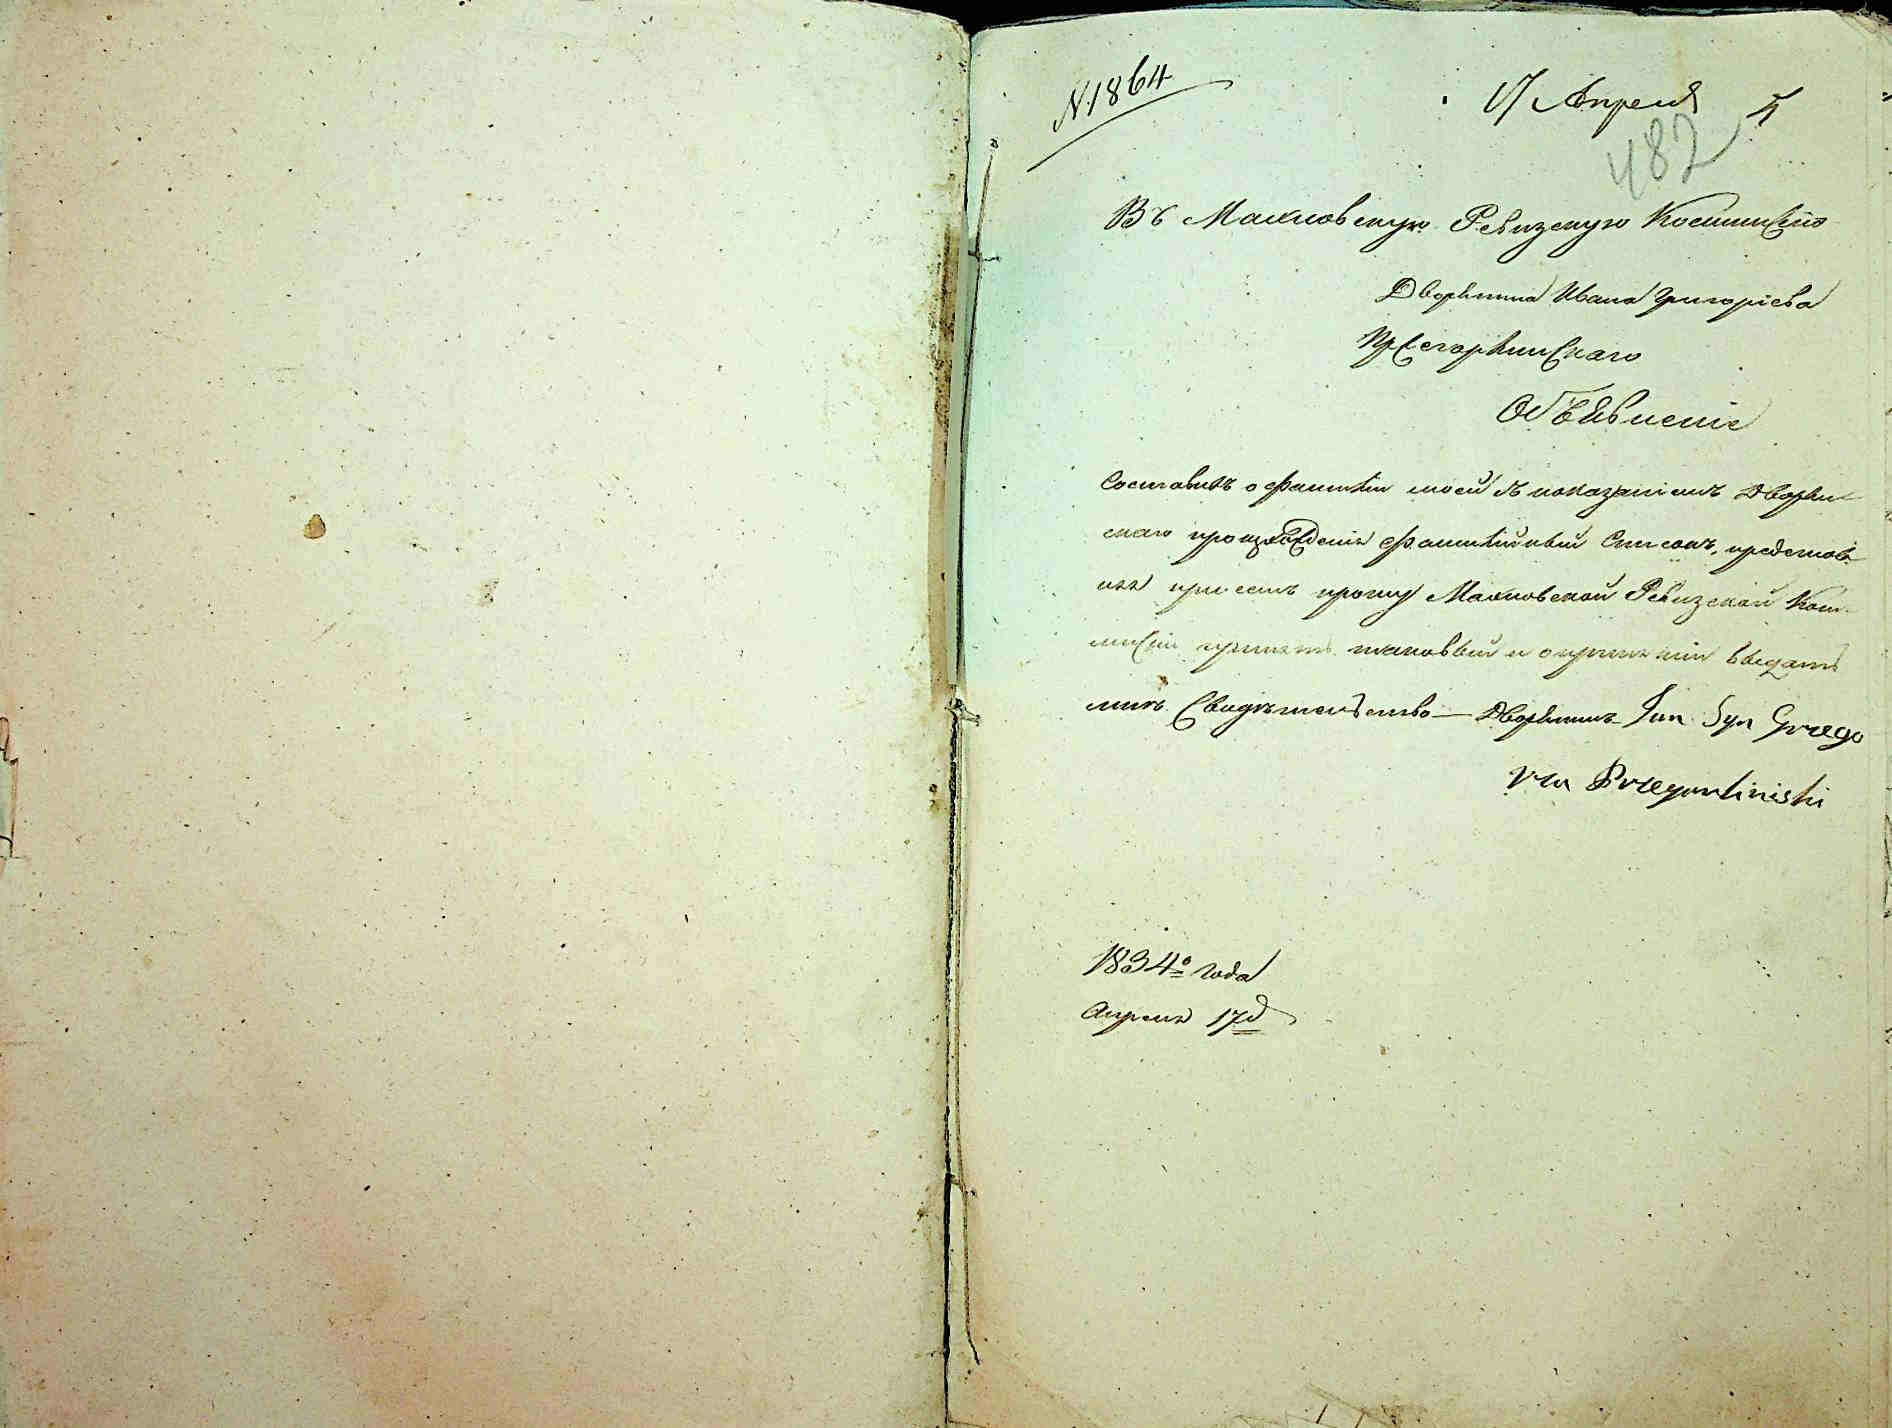 N. 1864
17 Апреля
482
Въ Махновскую Ревизскую Коммисію
Дворянина Ивана Григоріева
Пржегорлинскаго
Объявленіе
Составивъ о фамиліи моей съ показаніемъ Дворян-
скаго произхожденія фамилійный Списокъ, представ-
ляя при семъ прошу Махновской Ревизской Ком-
мисіи принять таковый и о принятіи выдать
мнѣ Свидѣтельство — Дворянинъ Jan Syn Grzego
rza Przegorlinski
1834º года
Апреля 17 д